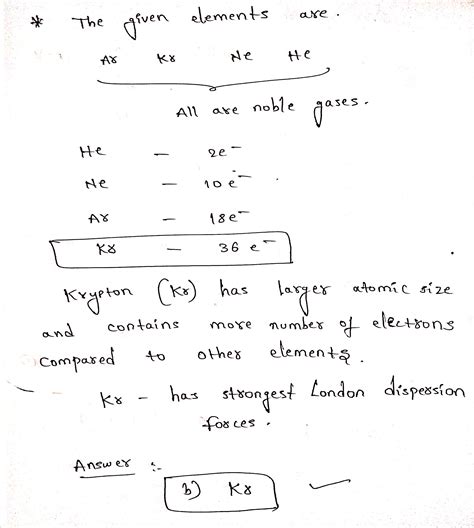 * The given elements are.
Ar Kr Ne He
All are noble gases.
He – 2e⁻
Ne – 10e⁻ .
Ar – 18e⁻
Kr – 36 e⁻
Krypton (Kr) has larger atomic size
and contains more number of electrons
compared to other elements.
Kr – has strongest London dispersion
forces.
Answer :-
b) Kr ✓